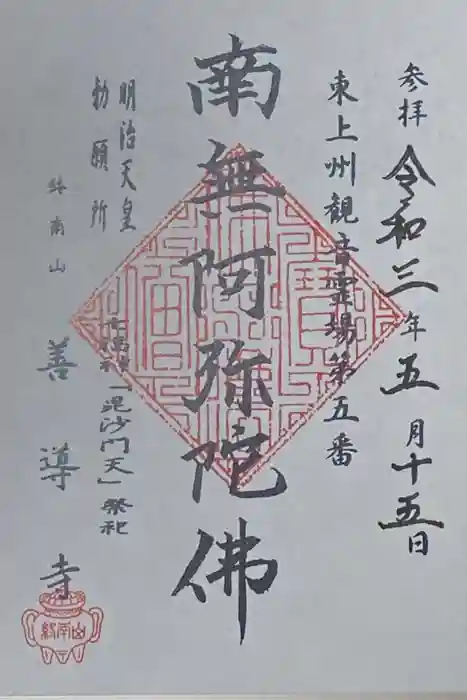 参拝 令和三年五月十五日
東上州観音霊場第五番
南無阿弥陀佛
明治天皇
勅願所
七福神「毘沙門天」祭祀
終南山 善導寺
終南山